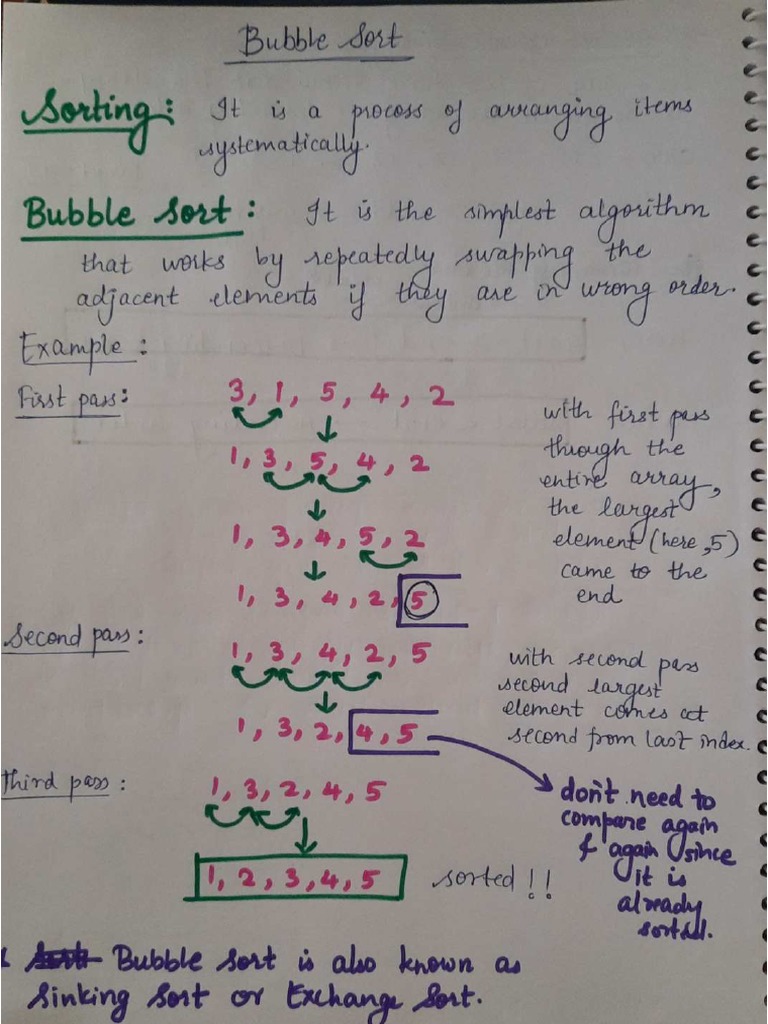 Bubble Sort
Sorting: It is a process of arranging items
systematically.
Bubble Sort: It is the simplest algorithm
that works by repeatedly swapping the
adjacent elements if they are in wrong order.
Example:
First pass: 3, 1, 5, 4, 2
1, 3, 5, 4, 2
1, 3, 4, 5, 2
1, 3, 4, 2, 5
with first pass
through the
entire array,
the largest
element (here, 5)
came to the
end
Second pass: 1, 3, 4, 2, 5
1, 3, 2, 4, 5
with second pass
second largest
element comes at
second from last index.
don't need to
compare again
& again since
it is
already
sorted.
Third pass: 1, 3, 2, 4, 5
1, 2, 3, 4, 5 sorted!!
Bubble sort is also known as
Sinking Sort or Exchange Sort.